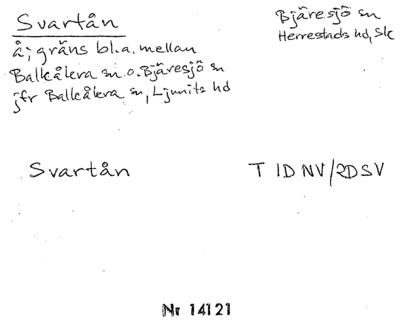 Svartån
Bjäresjö sn
Herrestads hd, Sk
å; gräns bl.a. mellan
Balkåkra sn o. Bjäresjö sn
jfr Balkåkra sn, Ljunits hd
Svartån
T 1D NV/2D SV
Nr 14121